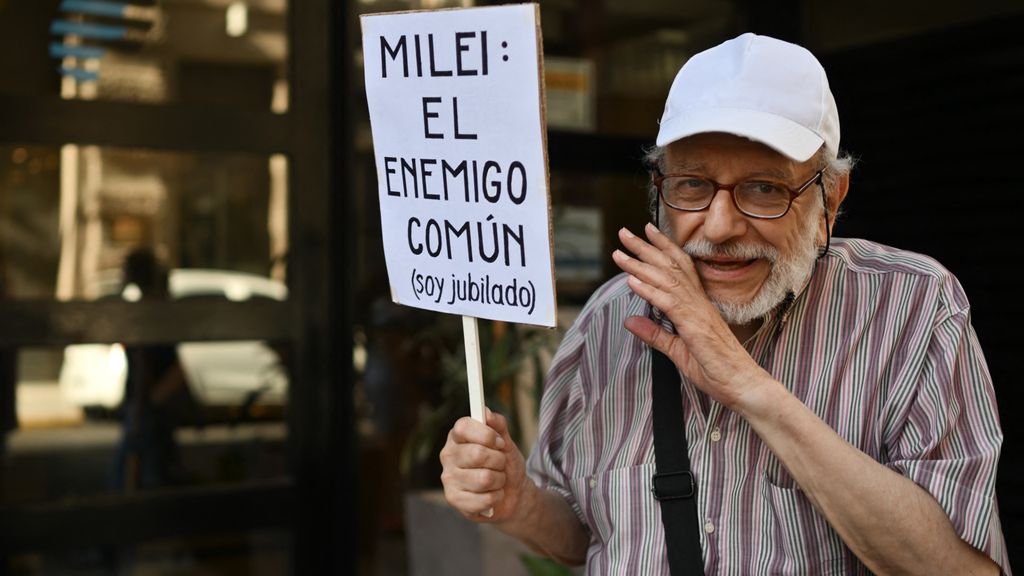 MILEI:
EL
ENEMIGO
COMÚN
(soy jubilado)